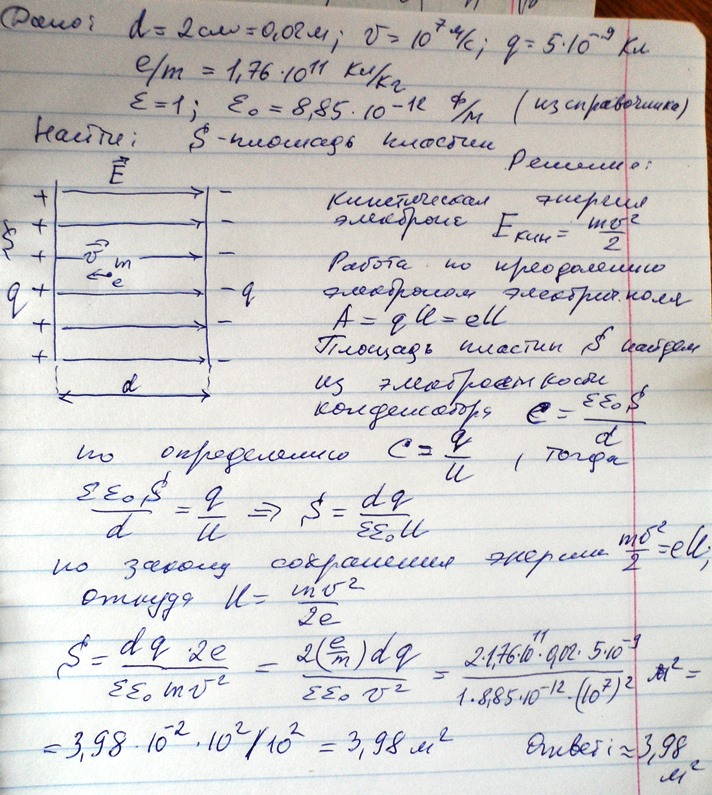 Дано: d = 2 см = 0,02 м; v = 10⁷ м/с; q = 5·10⁻⁹ Кл
e/m = 1,76·10¹¹ Кл/кг
ε = 1; ε₀ = 8,85·10⁻¹² Ф/м (из справочника)
Найти: S - площадь пластин
Решение:
E⃗
+ −
+ −
S + v⃗ m e −
q + − q
+ −
+ −
d
Кинетическая энергия
электрона Eкин = mv²/2
Работа по преодолению
электроном электрич. поля
A = qU = eU
Площадь пластин S найдем
из электроемкости
конденсатора C = εε₀S/d
по определению C = q/U, тогда
εε₀S/d = q/U ⇒ S = dq/εε₀U
по закону сохранения энергии mv²/2 = eU;
откуда U = mv²/2e
S = dq·2e/εε₀mv² = 2(e/m)dq/εε₀v² = 2·1,76·10¹¹·0,02·5·10⁻⁹/1·8,85·10⁻¹²·(10⁷)² м² =
= 3,98·10⁻²·10²/10² = 3,98 м² Ответ: ≈ 3,98
м²